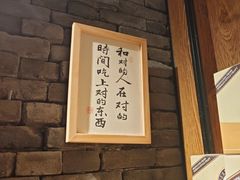 和对的人在对的
時间吃上对的东西